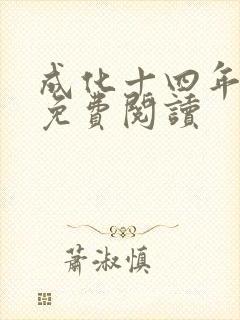 成化十四年
免費閱讀
蕭淑慎